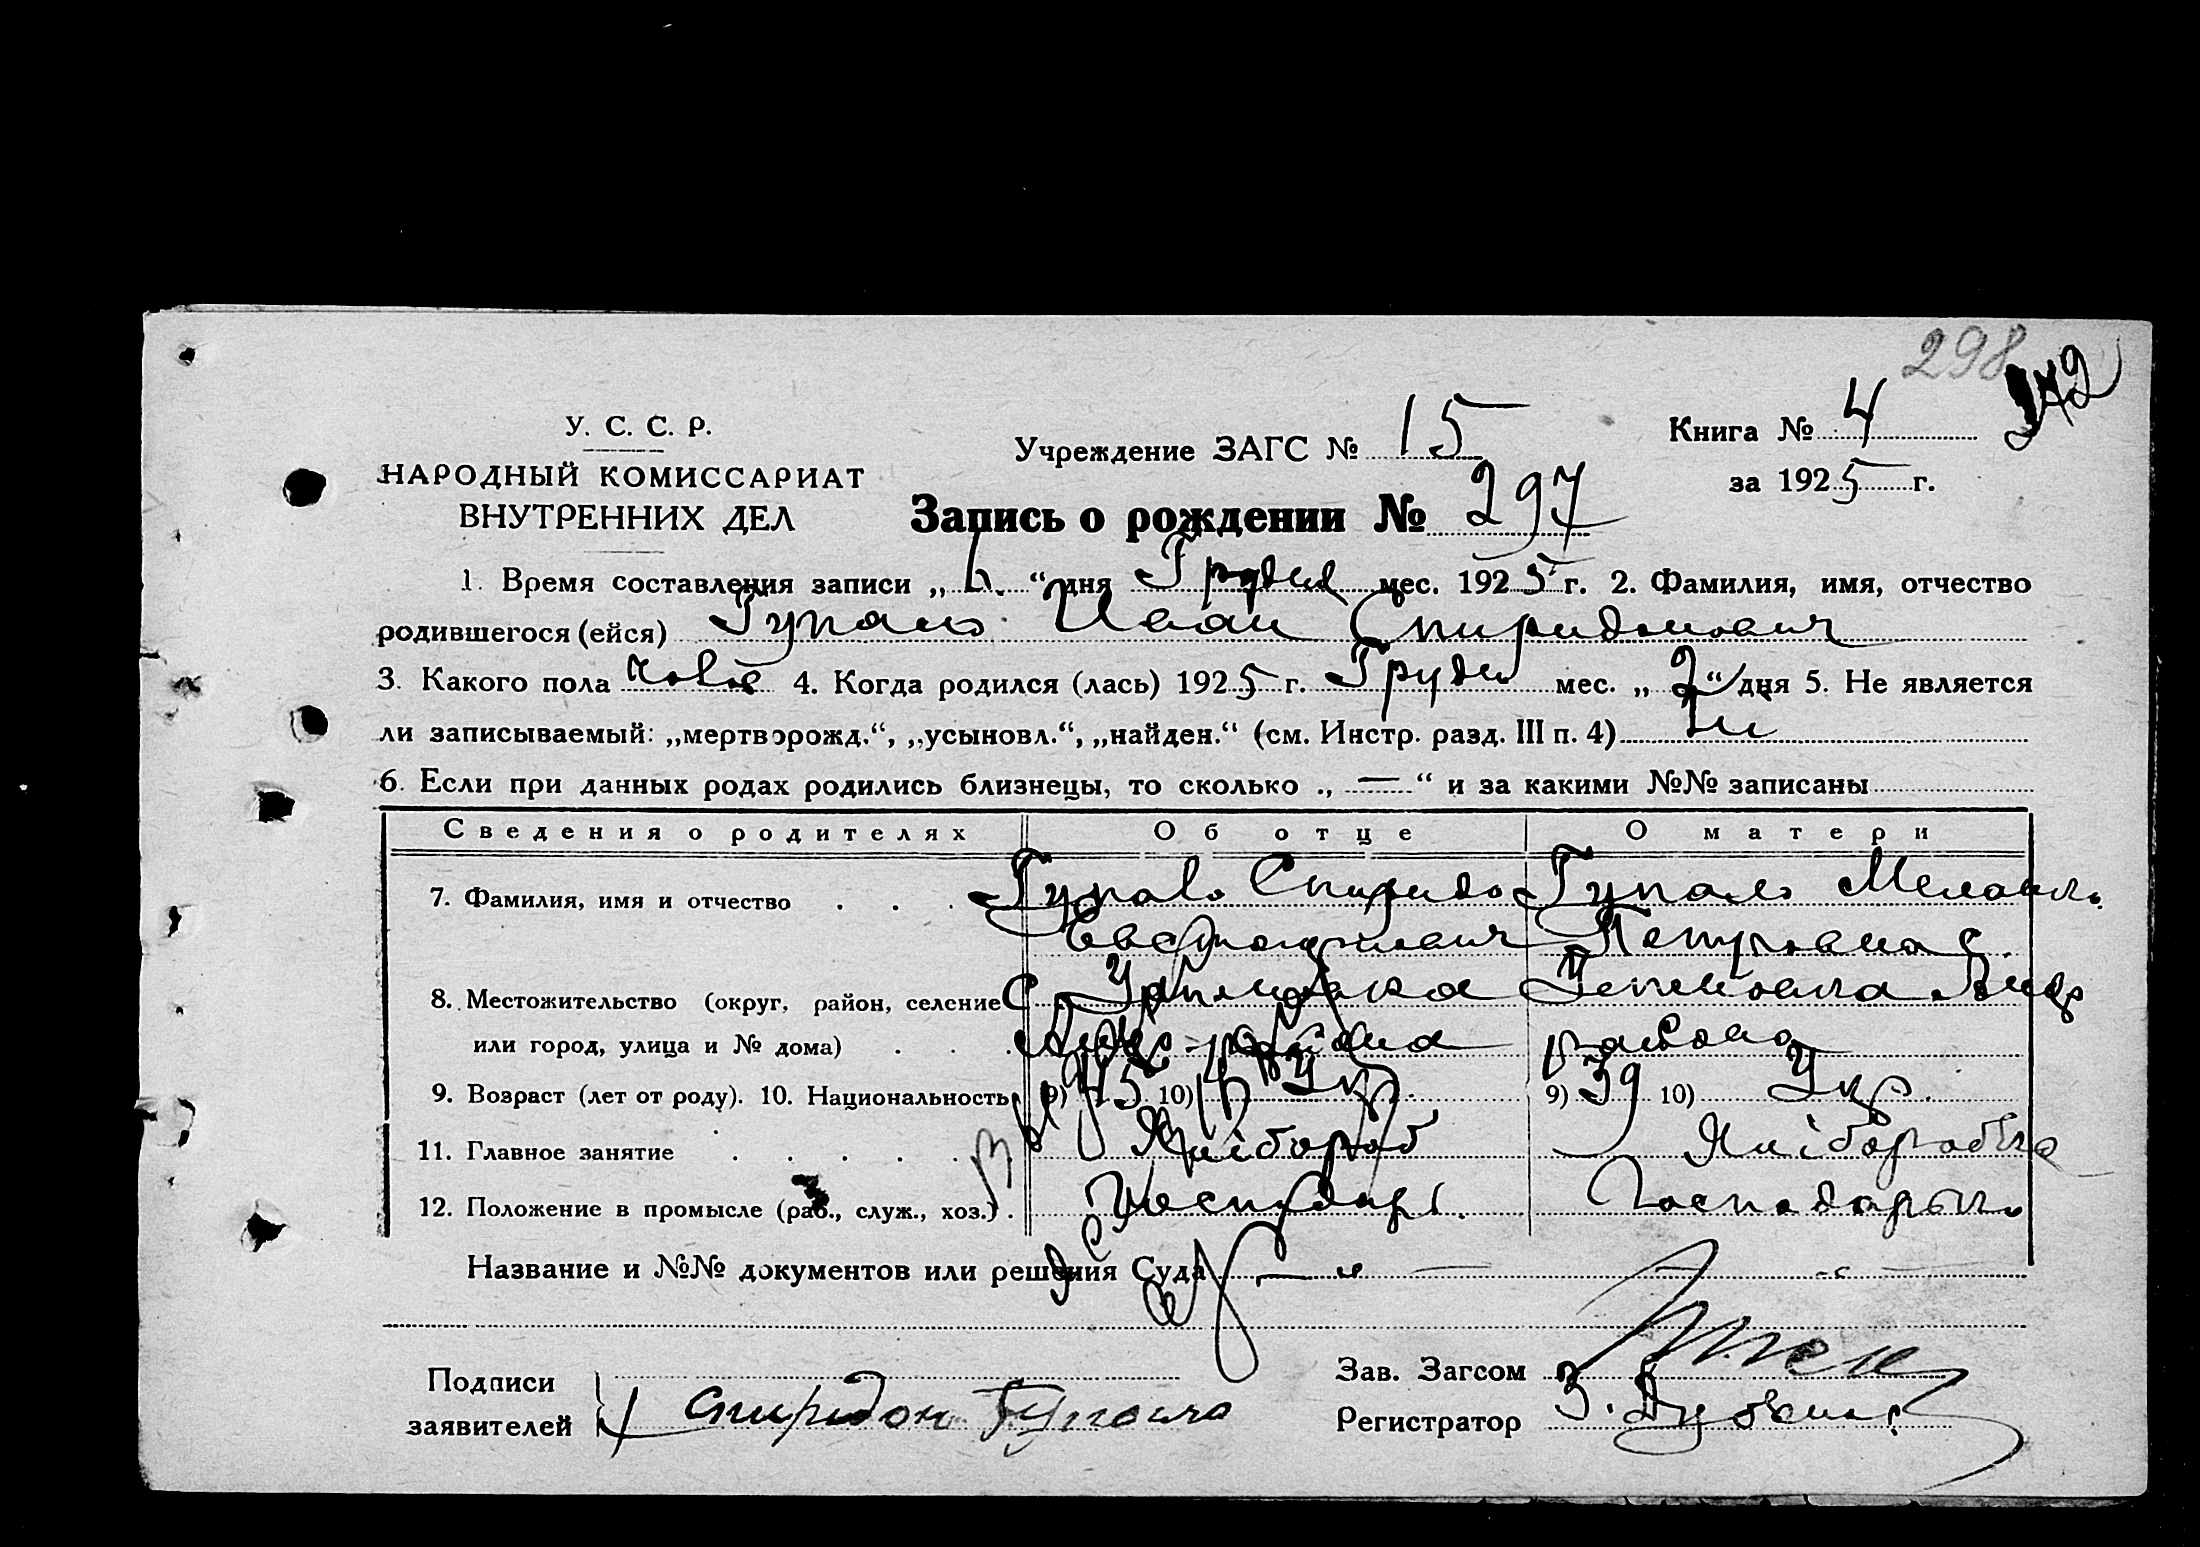 298
272
У. С. С. Р.
НАРОДНЫЙ КОМИССАРИАТ
ВНУТРЕННИХ ДЕЛ
Учреждение ЗАГС № 15
Книга № 4
за 1925 г.
Запись о рождении № 297
1. Время составления записи „ 6. “ дня Грудня мес. 1925 г. 2. Фамилия, имя, отчество
родившегося (ейся) Гупало Иван Спиридонович
3. Какого пола чолов 4. Когда родился (лась) 1925 г. Грудн мес. „ 2 “ дня 5. Не является
ли записываемый: „мертворожд.“, „усыновл.“, „найден.“ (см. Инстр. разд. III п. 4) Ни
6. Если при данных родах родились близнецы, то сколько „ — “ и за какими №№ записаны
Сведения о родителях Об отце О матери
7. Фамилия, имя и отчество . . . Гупало Спиридо Гупало
Петровна
8. Местожительство (округ, район, селение С.
или город, улица и № дома) . . . района района
9. Возраст (лет от роду). 10. Национальность 9) 45 10) Укр. 9) 39 10) Укр.
11. Главное занятие . . . . . Хлібороб Хліборобка
12. Положение в промысле (раб., служ., хоз.) . Господарь. Господарьнь
Название и №№ документов или решения Суда — „ — „ —
Подписи
заявителей } Спиридон Гупало
Зав. Загсом
Регистратор З.